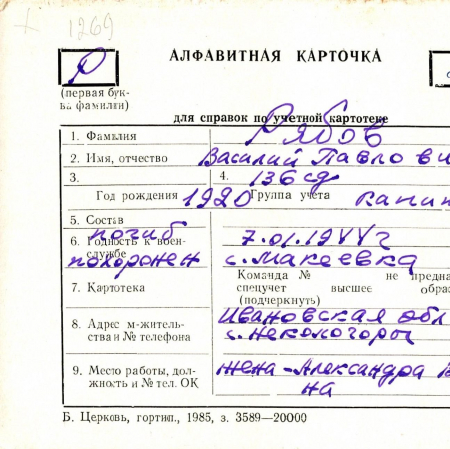 1269
Р
АЛФАВИТНАЯ КАРТОЧКА
(первая бук-
ва фамилии)
для справок по учетной картотеке
1. Фамилия Рябов
2. Имя, отчество Василий Павлови
3. 4. 136 сд
Год рождения 1920 Группа учета капит
5. Состав
погиб
6. Годность к воен- 7.01.1944 г
службе
похоронен с. Макеевка
7. Картотека Команда № не предна
спецучет высшее образ
(подчеркнуть)
8. Адрес м-житель- Ивановская обл
ства и № телефона с.
9. Место работы, дол- жена - Александра
жность и № тел. ОК на
Б. Церковь, гортип., 1985, з. 3589—20000